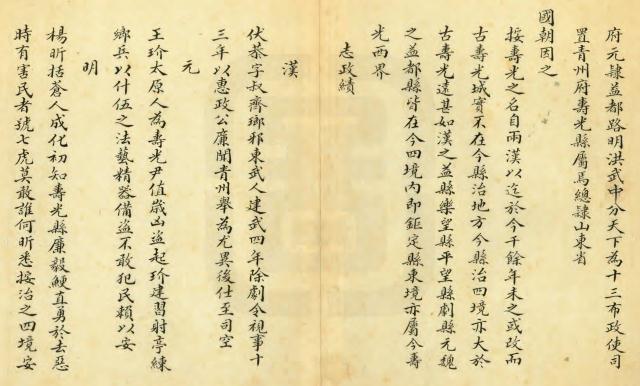 府元隸益都路明洪武中分天下為十三布政使司
置青州府壽光縣屬焉總隸山東省
國朝因之
按壽光之名自兩漢以迄於今千餘年未之或改而
古壽光城實不在今縣治地方今縣治四境亦大於
古壽光遠甚如漢之益縣樂望縣平望縣劇縣元魏
之益都縣皆在今四境內即鉅定縣東境亦屬今壽
光西界
志政績
漢
伏恭字叔齊瑯邪東武人建武四年除劇令視事十
三年以惠政公廉聞青州舉為尤異後仕至司空
元
王玠太原人為壽光尹值歲凶盜起玠建習射亭練
鄉兵以什伍之法藝精器備盜不敢犯民賴以安
明
楊昕括蒼人成化初知壽光縣廉毅鯁直勇於去惡
時有害民者號七虎莫敢誰何昕悉按治之四境安